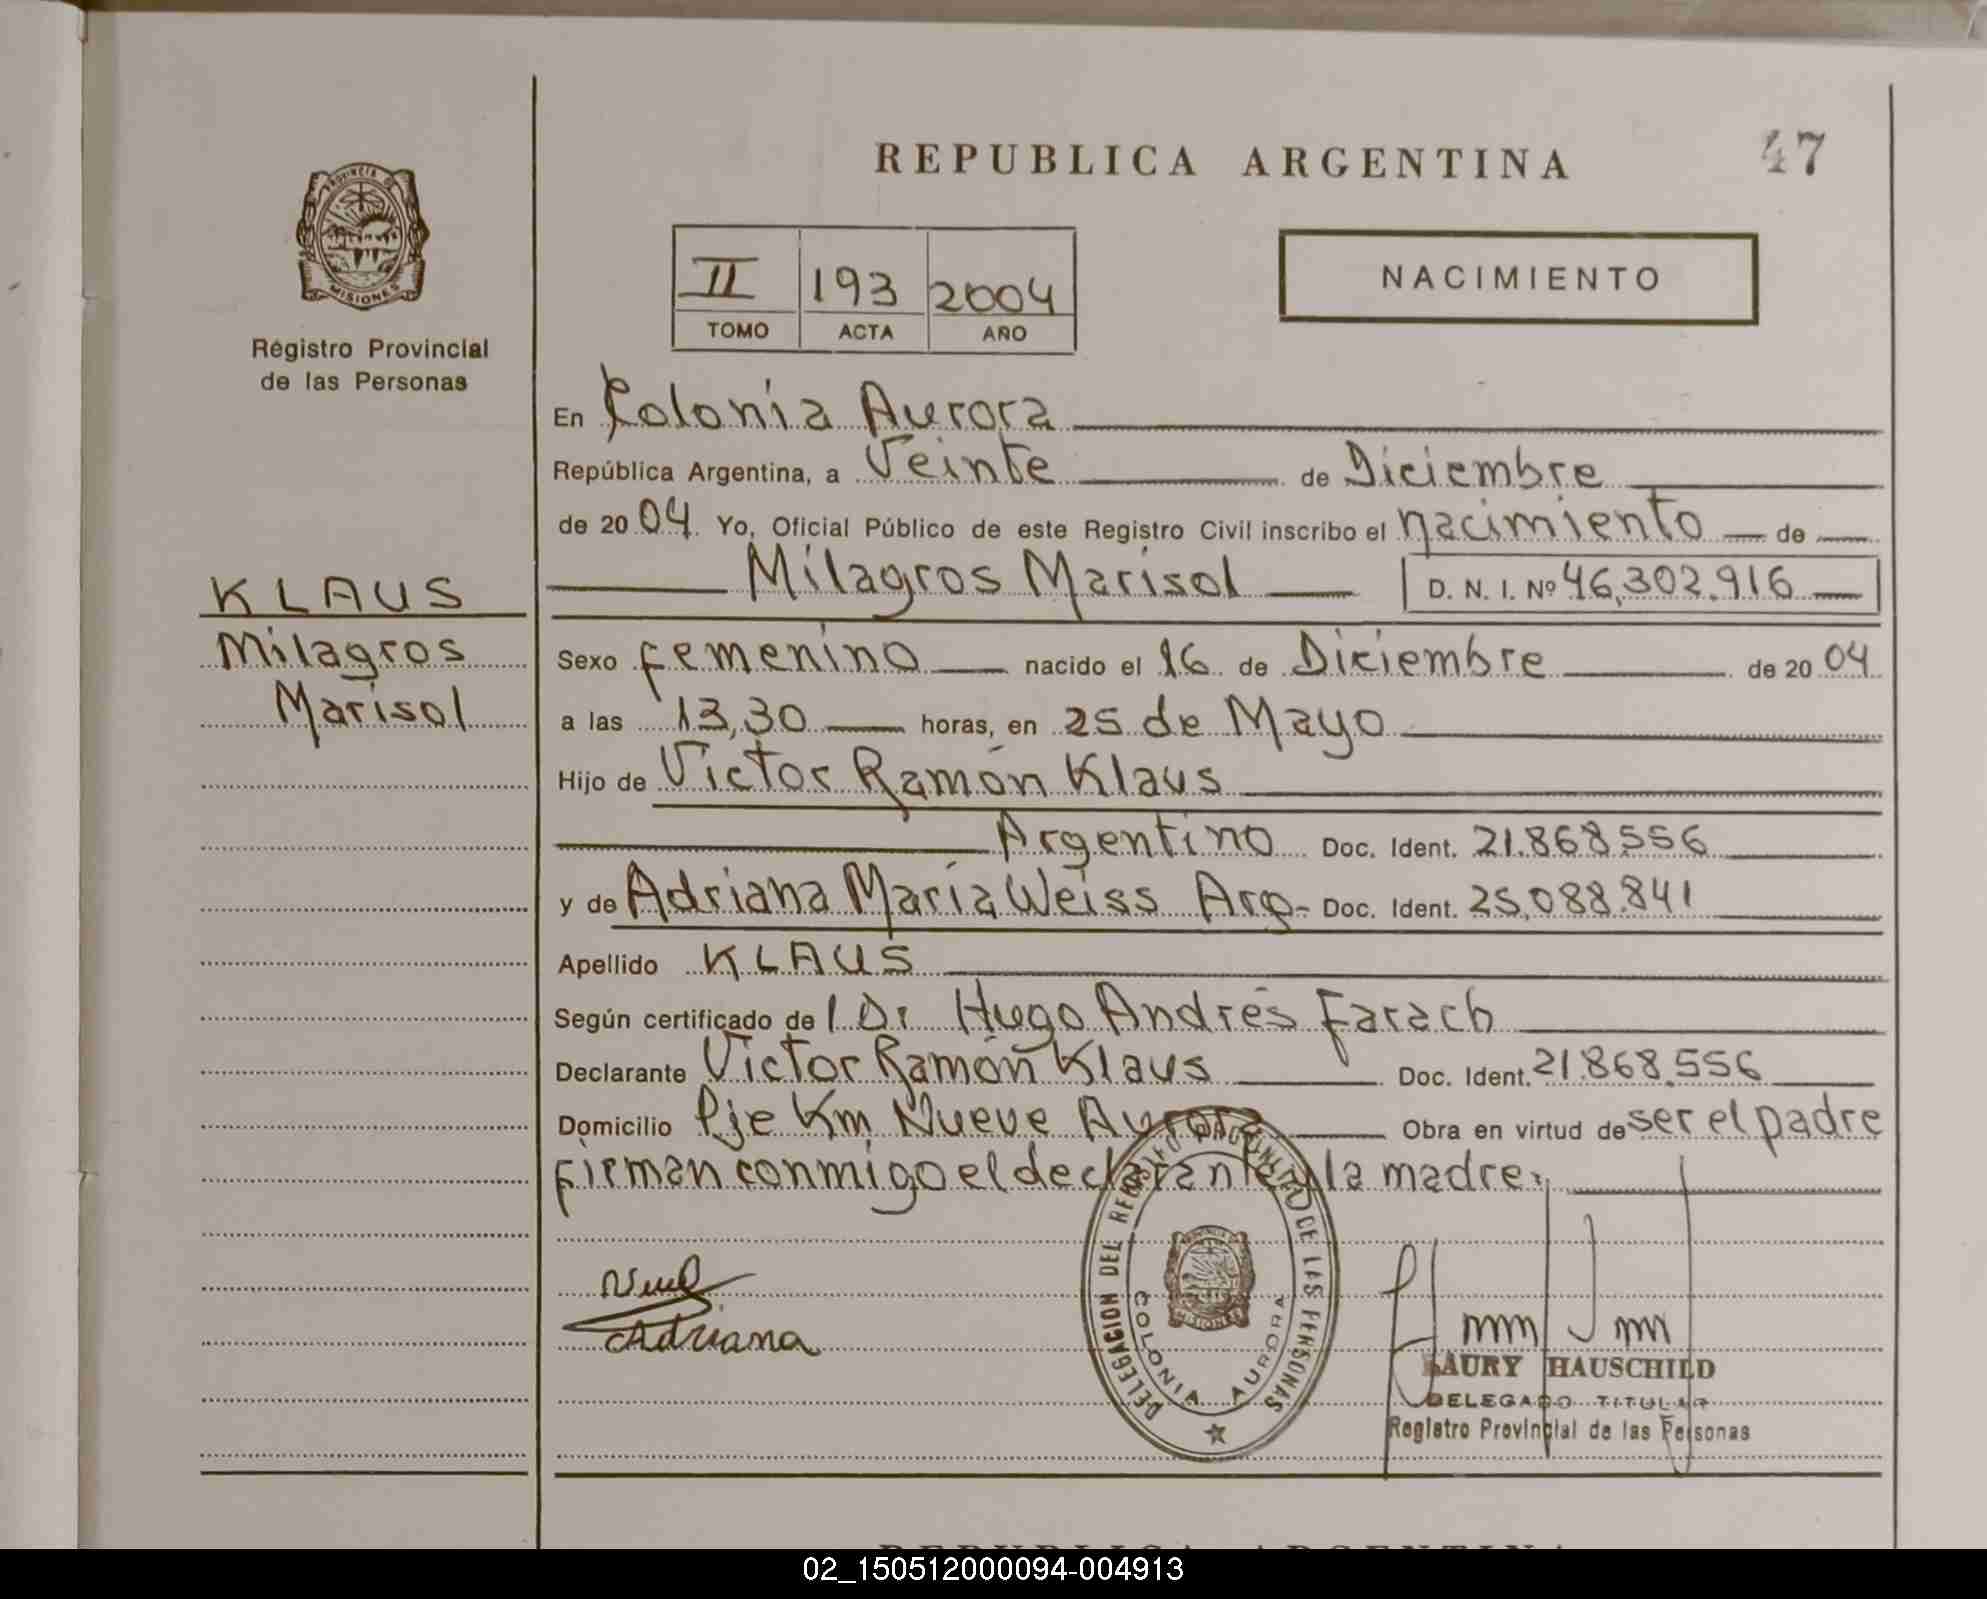 REPUBLICA ARGENTINA
47
PROVINCIA DE
MISIONES
Registro Provincial
de las Personas
II 193 2004
TOMO ACTA AÑO
NACIMIENTO
En Colonia Aurora
República Argentina, a Veinte de Diciembre
de 20 04. Yo, Oficial Público de este Registro Civil inscribo el nacimiento de
Milagros Marisol D. N. I. Nº 46.302.916
KLAUS
Milagros
Marisol
Sexo femenino nacido el 16 de Diciembre de 20 04
a las 13,30 horas, en 25 de Mayo
Hijo de Victor Ramón Klaus
Argentino Doc. Ident. 21.868.556
y de Adriana María Weiss Arg- Doc. Ident. 25.088.841
Apellido KLAUS
Según certificado de l Dr Hugo Andrés Farach
Declarante Victor Ramón Klaus Doc. Ident. 21.868.556
Domicilio Pje Km Nueve Aurora Obra en virtud de ser el padre
firman conmigo el declarante y la madre.
Adriana
DELEGACION DEL REGISTRO PROVINCIAL DE LAS PERSONAS
COLONIA AURORA
MISIONES
LAURY HAUSCHILD
DELEGADO TITULAR
Registro Provincial de las Personas
REPUBLICA ARGENTINA
02_150512000094-004913